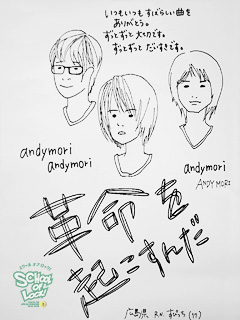 いつもいつも すばらしい曲を
ありがとう。
ずっとずっと 大切です。
ずっとずっと だいすきです。
andymori
andymori
andymori
ANDY MORI
革命を
起こすんだ
SCHOOL
OF
LOCK!
広島県 R.N. すぴっち (17)